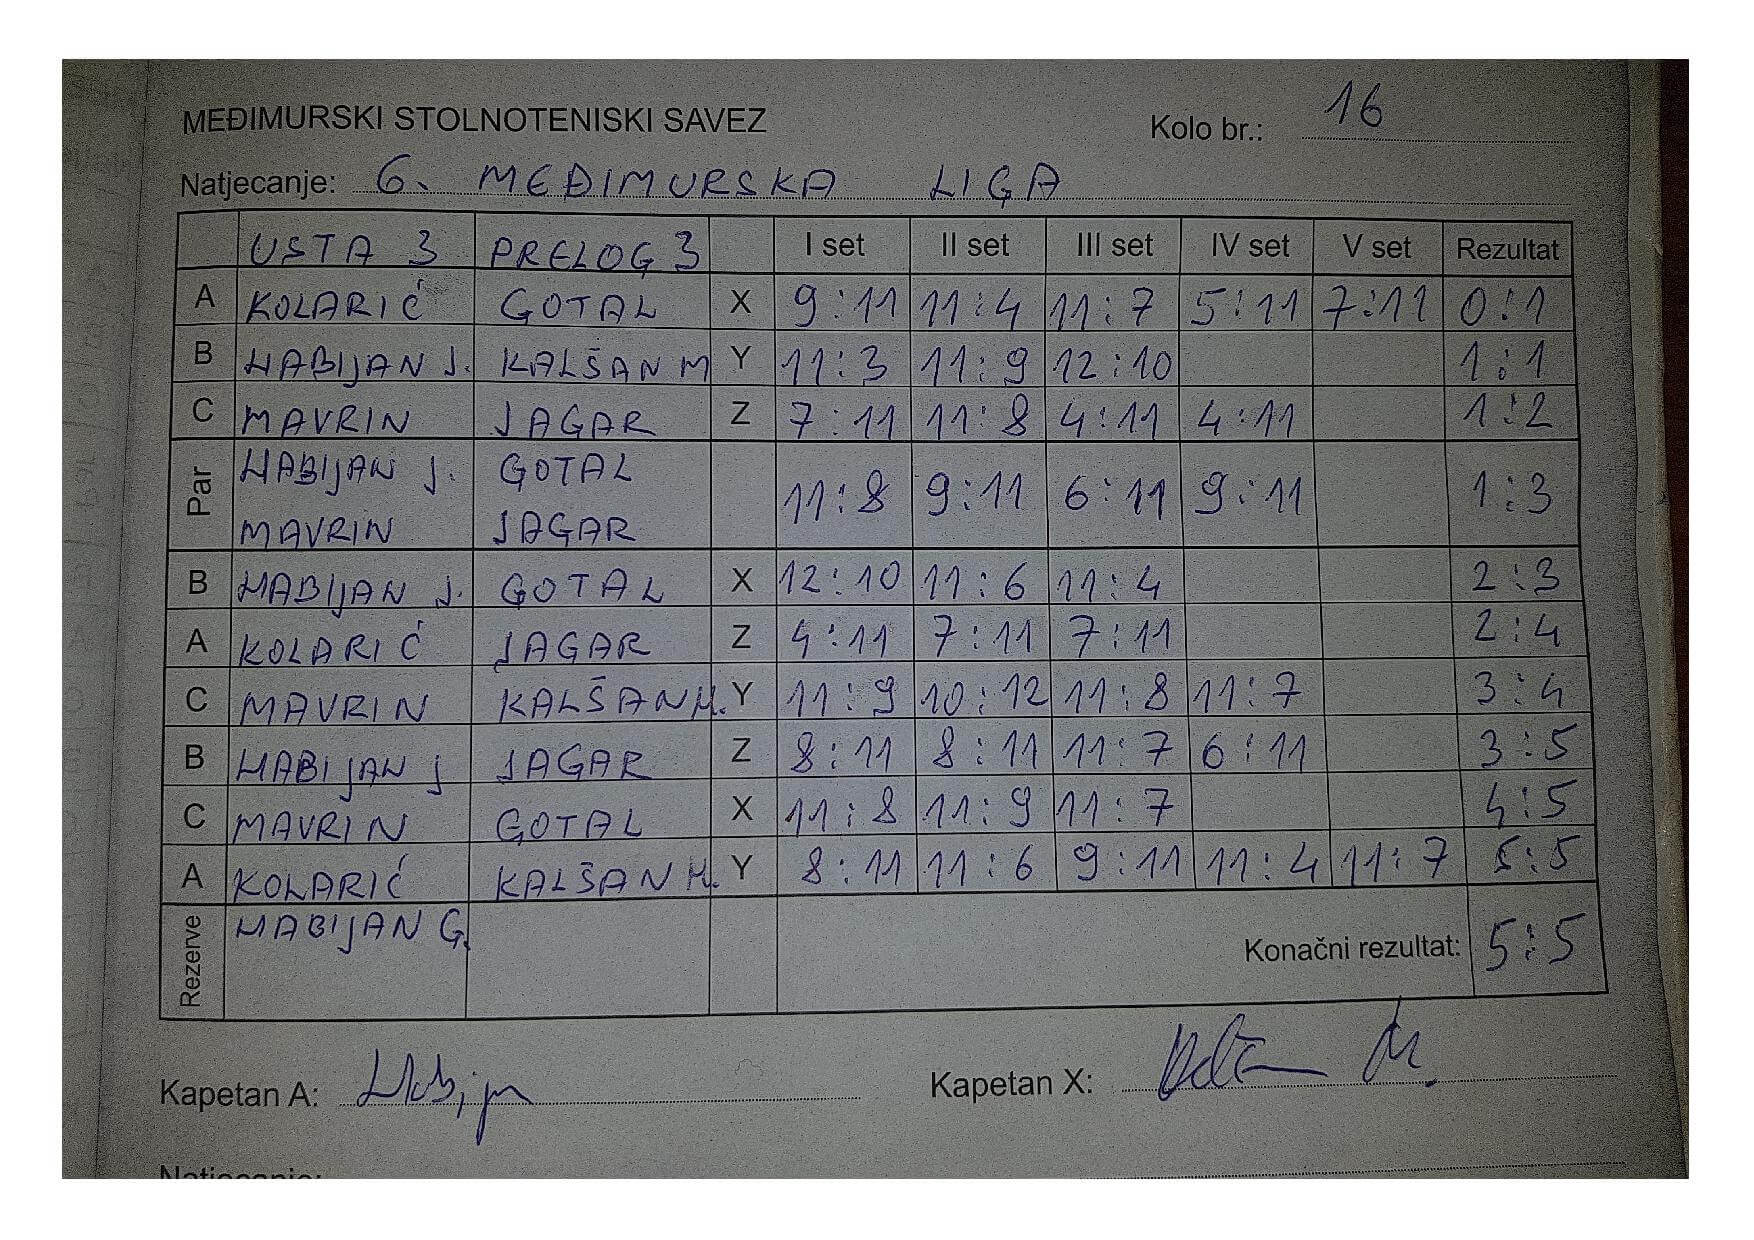 MEĐIMURSKI STOLNOTENISKI SAVEZ Kolo br.: 16
Natjecanje: 6. MEĐIMURSKA LIGA
USTA 3 PRELOG 3 I set II set III set IV set V set Rezultat
A KOLARIĆ GOTAL X 9:11 11:4 11:7 5:11 7:11 0:1
B HABIJAN J. KALŠAN M Y 11:3 11:9 12:10 1:1
C MAVRIN JAGAR Z 7:11 11:8 4:11 4:11 1:2
Par HABIJAN J. GOTAL 11:8 9:11 6:11 9:11 1:3
MAVRIN JAGAR
B HABIJAN J. GOTAL X 12:10 11:6 11:4 2:3
A KOLARIĆ JAGAR Z 4:11 7:11 7:11 2:4
C MAVRIN KALŠAN M. Y 11:9 10:12 11:8 11:7 3:4
B HABIJAN J JAGAR Z 8:11 8:11 11:7 6:11 3:5
C MAVRIN GOTAL X 11:8 11:9 11:7 4:5
A KOLARIĆ KALŠAN M. Y 8:11 11:6 9:11 11:4 11:7 5:5
Rezerve HABIJAN G. Konačni rezultat: 5:5
Kapetan A: Kapetan X:
Natjecanje: